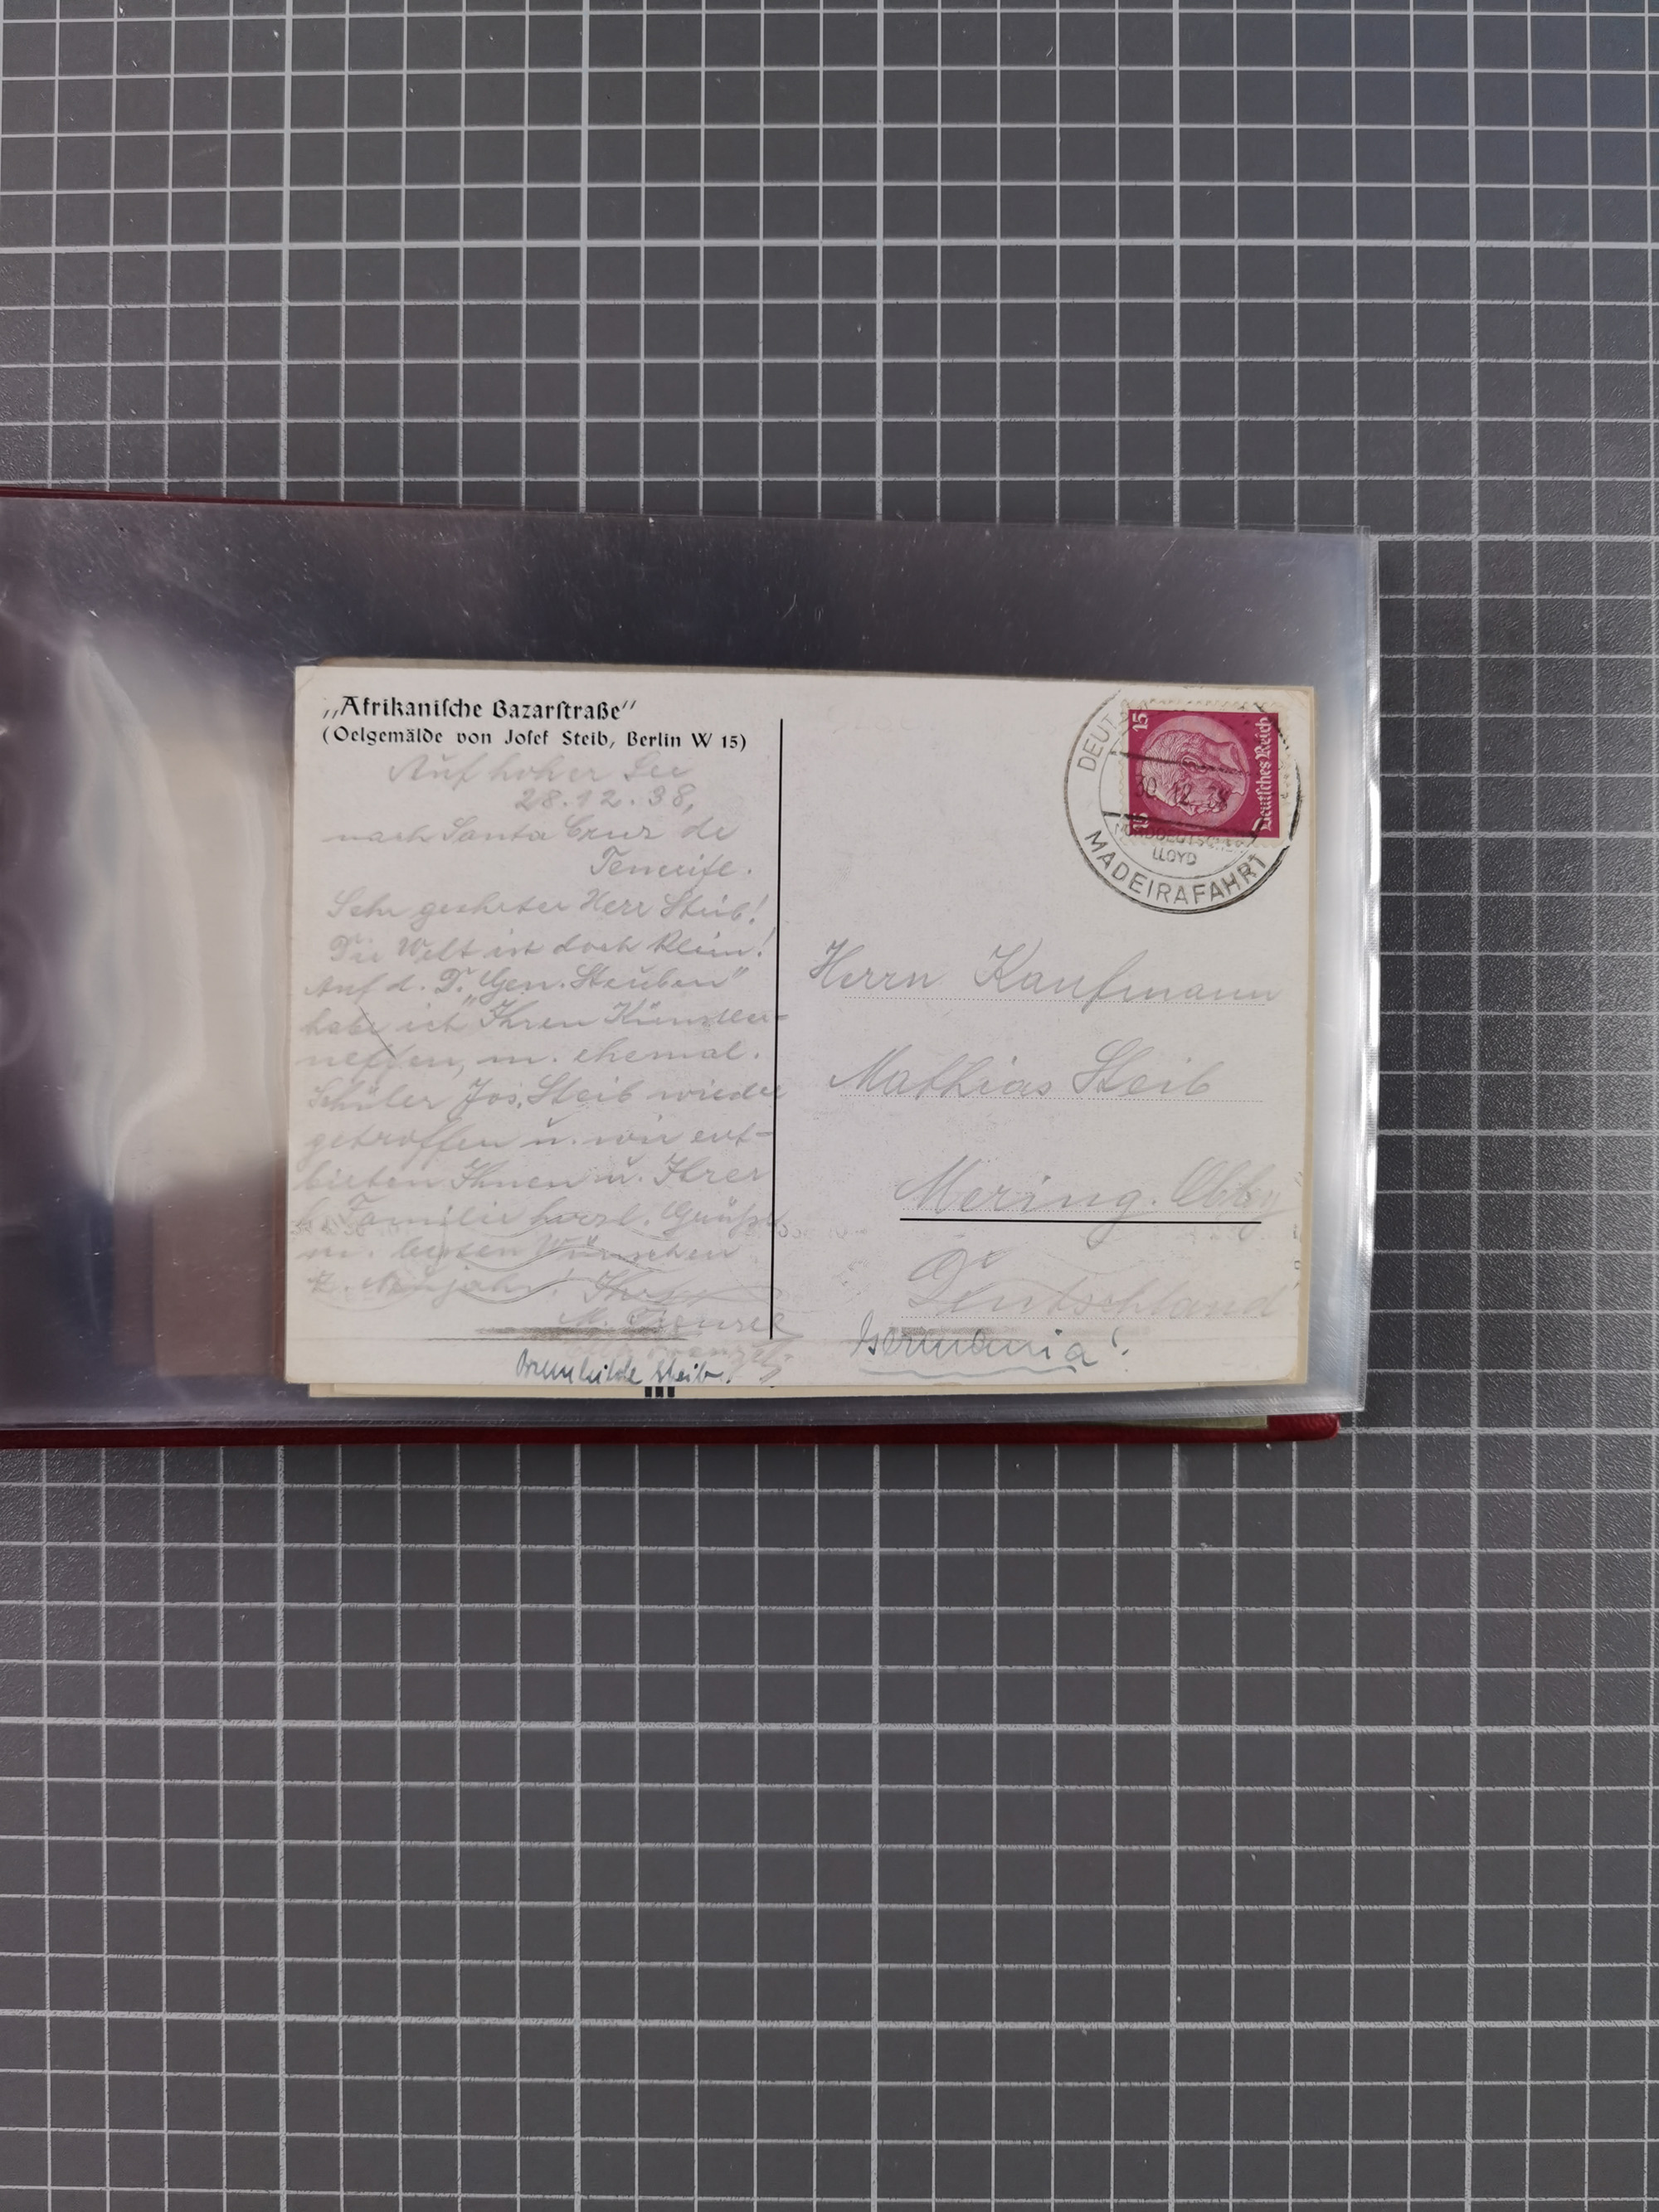 „Afrikanische Bazarstraße"
(Oelgemälde von Josef Steib, Berlin W 15)
Auf hoher See
28.12.38,
nach Santa Cruz de
Tenerife.
Sehr geehrter Herr Steib!
Die Welt ist doch klein!
Auf d. D. „Gen. Steuben"
habe ich Ihren Künstler-
neffen, m. ehemal.
Schüler Jos. Steib wieder
getroffen u. wir ent-
bieten Ihnen u. Ihrer
Familie herzl. Grüße
m. besten Wünschen
z. Neujahr! Ihr
M.
Brunhilde Steib.
15 15
Deutsches Reich
DEUT
30.12.38
NORDDEUTSCHER
LLOYD
MADEIRAFAHRT
Herrn Kaufmann
Mathias Steib
Mering. Obby
Deutschland
Germania!